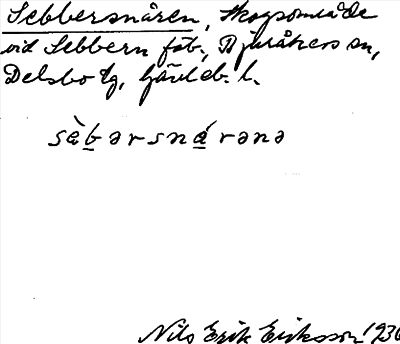 Sebbersnåren, skogsområde
vid Sebbern fäb., Bjuråkers sn,
Delsbo tg, Gävleb. l.
sàbərsnárənə
Nils Erik Eriksson 1936